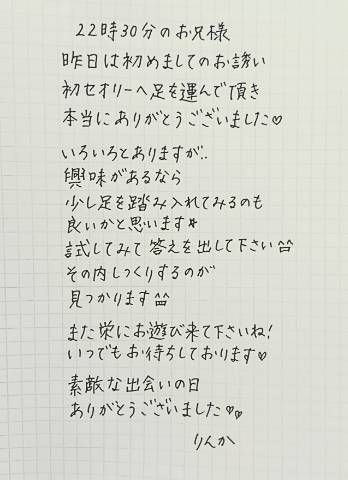 22時30分のお兄様
昨日は初めましてのお誘い
初セオリーへ足を運んで頂き
本当にありがとうございました♡
いろいろとありますが..
興味があるなら
少し足を踏み入れてみるのも
良いかと思います★
試してみて答えを出して下さい^^
その内しっくりするのが
見つかります^^
また栄にお遊び来て下さいね!
いつでもお待ちしております♡
素敵な出会いの日
ありがとうございました♡♡
りんか